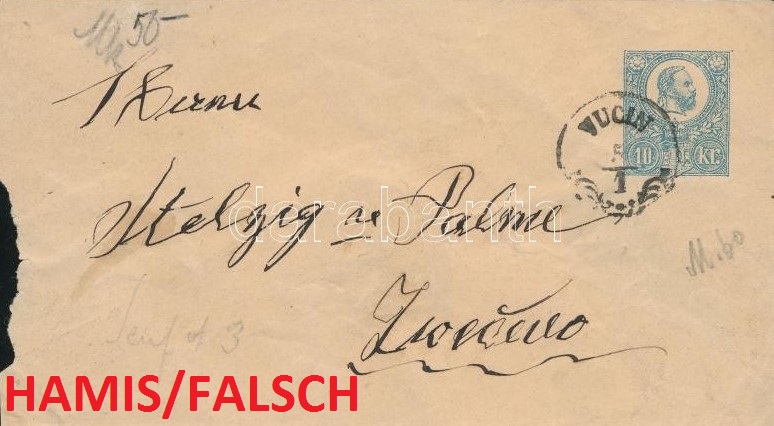 50-
Herrn
VUCIN
5
1
10 KR.
Stelzig & Palme
darabanth
M. 60
Zvečevo
HAMIS/FALSCH